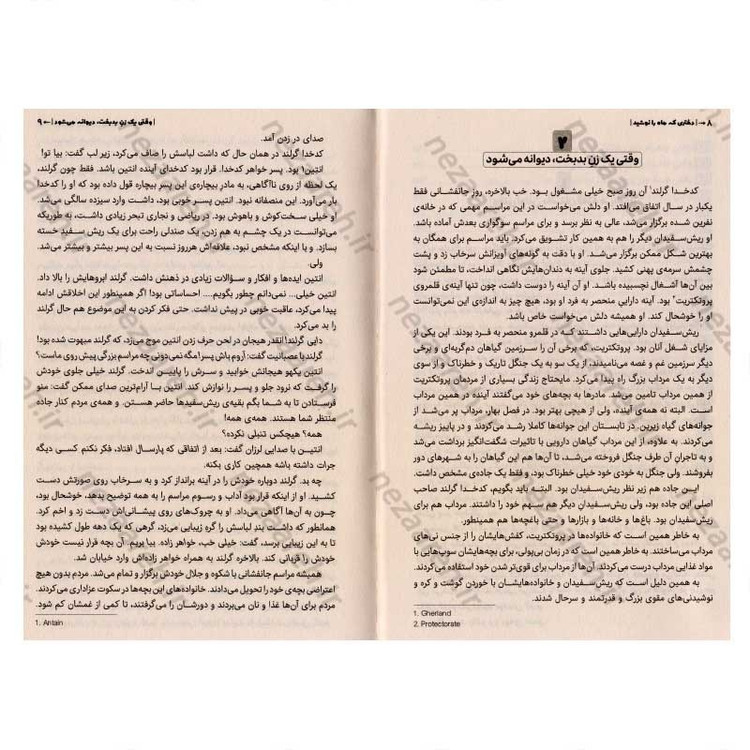 ۸ → | دختری که ماه را نوشید |
۲
وقتی یک زنِ بدبخت، دیوانه می‌شود
کدخدا گرلند¹ آن روز صبح خیلی مشغول بود. خب بالاخره، روز جانفشانی فقط
یکبار در سال اتفاق می‌افتد. او دلش می‌خواست در این مراسم مهمی که در خانه‌ی
نفرین شده برگزار می‌شد، عالی به نظر برسد و برای مراسم سوگواری بعدش آماده باشد.
او ریش‌سفیدان دیگر را هم به همین کار تشویق می‌کرد. باید مراسم برای همگان به
بهترین شکل ممکن برگزار می‌شد. او با دقت به گونه‌های آویزانش سرخاب زد و پشت
چشمش سرمه‌ی پهنی کشید. جلوی آینه به دندان‌هایش نگاهی انداخت، تا مطمئن شود
بین آن‌ها آشغال نچسبیده باشد. او آن آینه را دوست داشت، چون تنها آینه‌ی قلمروی
پروتکتریت² بود. آینه داراییِ منحصر به فرد او بود، هیچ چیز به اندازه‌ی این نمی‌توانست
او را خوشحال کند. او همیشه دلش می‌خواست خاص باشد.
ریش‌سفیدان دارایی‌هایی داشتند که در قلمرو منحصر به فرد بودند. این یکی از
مزایای شغل آنان بود. پروتکتریت، که برخی آن را سرزمین گیاهان دم‌گربه‌ای و برخی
دیگر سرزمین غم و غصه می‌نامیدند، از یک سو به یک جنگل تاریک و خطرناک و از سوی
دیگر به یک مرداب بزرگ راه پیدا می‌کرد. مایحتاج زندگی بسیاری از مردمان پروتکتریت
از همین مرداب تامین می‌شد. مادرها به بچه‌های خود می‌گفتند آینده در همین مرداب
است. البته نه همه‌ی آینده، ولی از هیچی بهتر بود. در فصل بهار، مرداب پر می‌شد از
جوانه‌های گیاه زیرین، در تابستان این جوانه‌ها کاملا رشد می‌کردند و در پاییز ریشه
می‌کردند. به علاوه، از این مرداب گیاهان دارویی با تاثیرات شگفت‌انگیز برداشت می‌شد
و به تاجرانِ آن طرف جنگل فروخته می‌شد، تا آن‌ها هم این گیاهان را به شهرهای دور
بفروشند. ولی جنگل به خودی خود خیلی خطرناک بود، و فقط یک جاده‌ی مشخص داشت.
این جاده هم زیر نظر ریش‌سفیدان بود. البته باید بگویم، کدخدا گرلند صاحب
اصلی این جاده بود، ولی ریش‌سفیدان دیگر هم سهم خود را داشتند. مرداب هم برای
ریش‌سفیدان بود. باغ‌ها و خانه‌ها و بازارها و حتی باغچه‌ها هم همینطور.
به خاطر همین است که خانواده‌ها در پروتکتریت، کفش‌هایشان را از جنس نی‌های
مرداب می‌ساختند. به خاطر همین است که در زمان بی‌پولی، برای بچه‌هایشان سوپ‌هایی با
مواد غذایی مرداب درست می‌کردند. آن‌ها از مرداب برای قوی‌تر شدن خود استفاده می‌کردند.
به همین دلیل است که ریش‌سفیدان و خانواده‌هایشان با خوردن گوشت و کره و
نوشیدنی‌های مقوی بزرگ و قدرتمند و سرحال شدند.
1. Gherland
2. Protectorate
| وقتی یک زن بدبخت، دیوانه می‌شود | ← ۹
صدای در زدن آمد.
کدخدا گرلند در همان حال که داشت لباسش را صاف می‌کرد، زیر لب گفت: بیا تو!
انتین¹ بود. پسر خواهر کدخدا. قرار بود کدخدای آینده انتین باشد. فقط چون گرلند،
یک لحظه از روی ناآگاهی، به مادرِ بیچاره‌ی این پسر بیچاره قول داده بود که او را کدخدا
بار می‌آورد. این منصفانه نبود. انتین پسر خوبی بود، داشت وارد سیزده سالگی می‌شد.
او خیلی سخت‌کوش و باهوش بود. در ریاضی و نجاری تبحر زیادی داشت، به طوری‌که
می‌توانست در یک چشم به هم زدن، یک صندلی راحت برای یک ریش‌سفید خسته
بسازد. و با اینکه مشخص نبود، علاقه‌اش هرروز نسبت به این پسر بیشتر و بیشتر می‌شد.
ولی.
انتین ایده‌ها و افکار و سؤالات زیادی در ذهنش داشت. گرلند ابروهایش را بالا داد.
انتین خیلی... نمی‌دانم چطور بگویم.... احساساتی بود! اگر همینطور این اخلاقش ادامه
پیدا می‌کرد، عاقبت خوبی در پیش نداشت. حتی فکر کردن به این موضوع هم حال گرلند
را بد می‌کرد.
دایی گرلند! انقدر هیجان در لحن حرف زدن انتین موج می‌زد، که گرلند مبهوت شده بود!
گرلند با عصبانیت گفت: آروم باش پسر! مگه نمی‌دونی چه مراسم بزرگی پیش روی ماست؟
انتین یکهو هیجانش خوابید و سرش را پایین انداخت. گرلند خیلی جلوی خودش
را گرفت که نرود جلو و پسر را نوازش کند. انتین با آرام‌ترین صدای ممکن گفت: منو
فرستادن تا به شما بگم بقیه‌ی ریش‌سفیدها حاضر هستن. و همه‌ی مردم کنار جاده
منتظر شما هستند. همه‌ی همه!
همه؟ هیچکس تنبلی نکرده؟
انتین با صدایی لرزان گفت: بعد از اتفاقی که پارسال افتاد، فکر نکنم کسی دیگه
جرات داشته باشه همچین کاری بکنه.
چه بد. گرلند دوباره خودش را در آینه برانداز کرد و به سرخاب روی صورتش دست
کشید. او از اینکه قرار بود آداب و رسوم مراسم را به همه توضیح بدهد، خوشحال بود،
چون به آن‌ها آگاهی می‌داد. او به چروک‌های روی پیشانی‌اش دست زد و اخم کرد.
همانطور که داشت بندِ لباسش را گره زیبایی می‌زد، گرهی که یک دهه طول کشیده بود
تا به این زیبایی برسد، گفت: خیلی خب، خواهر زاده. بیا بریم. آن بچه قرار نیست خودش
خودش را قربانی کند. بالاخره گرلند به همراه خواهر زاده‌اش وارد خیابان شد.
همیشه مراسم جانفشانی با شکوه و جلال خودش برگزار و تمام می‌شد. مردم بدون هیچ
اعتراضی بچه‌ی خود را تحویل می‌دادند. خانواده‌های این بچه‌ها در سکوت عزاداری می‌کردند.
مردم برای آن‌ها غذا و نان می‌بردند و دورشان را می‌گرفتند، تا کمی از غمشان کم شود.
1. Antain